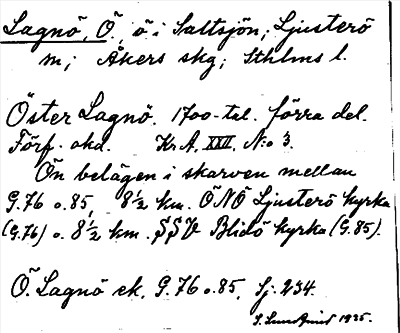 Lagnö, Ö., ö i Saltsjön; Ljusterö
m; Åkers skg; Sthlms l.
Öster Lagnö. 1700-tal. förra del.
Förf. okd. Kr.A. XXII. N:o 3.
Ön belägen i skarven mellan
G.76 o. 85, 8½ km. ÖNÖ Ljusterö kyrka
(G.76) o. 8½ km. SSV Blidö kyrka (G.85).
Ö. Lagnö ek. G.76 o. 85. Sj. 234.
1935.